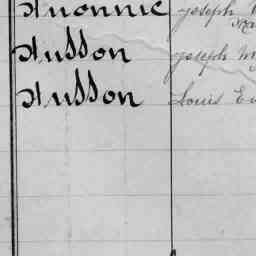 Huonnic Joseph
Husson Joseph M
Husson Louis E